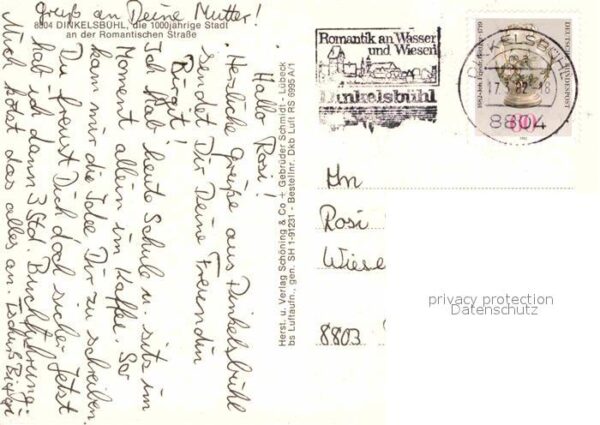 Gruß an Deine Mutter!
8804 DINKELSBÜHL, die 1000jährige Stadt
an der Romantischen Straße
Hallo Rosi!
Herzliche Grüße aus Dinkelsbühl
sendet Dir Deine Freundin
Birgit!
Ich hab' heute Schule u. sitz im
Moment allein im Kaffee. So
kam mir die Idee Dir zu schreiben.
Du freust Dich doch sicher. Jetzt
hab ich dann 3 Std. Buchführung.
Mich kotzt das alles an. Tschüß
Herst. u. Verlag Schöning & Co + Gebrüder Schmidt - Lübeck
bs Luftaufn., gen. SH 1-91231 - Bestellnr. Dkb Luft RS 6995 A/1
Romantik an Wasser
und Wiesen
Dinkelsbühl
DINKELSBÜHL
8804
DEUTSCHE BUNDESPOST
An
Rosi
Wiese
8803
privacy protection
Datenschutz